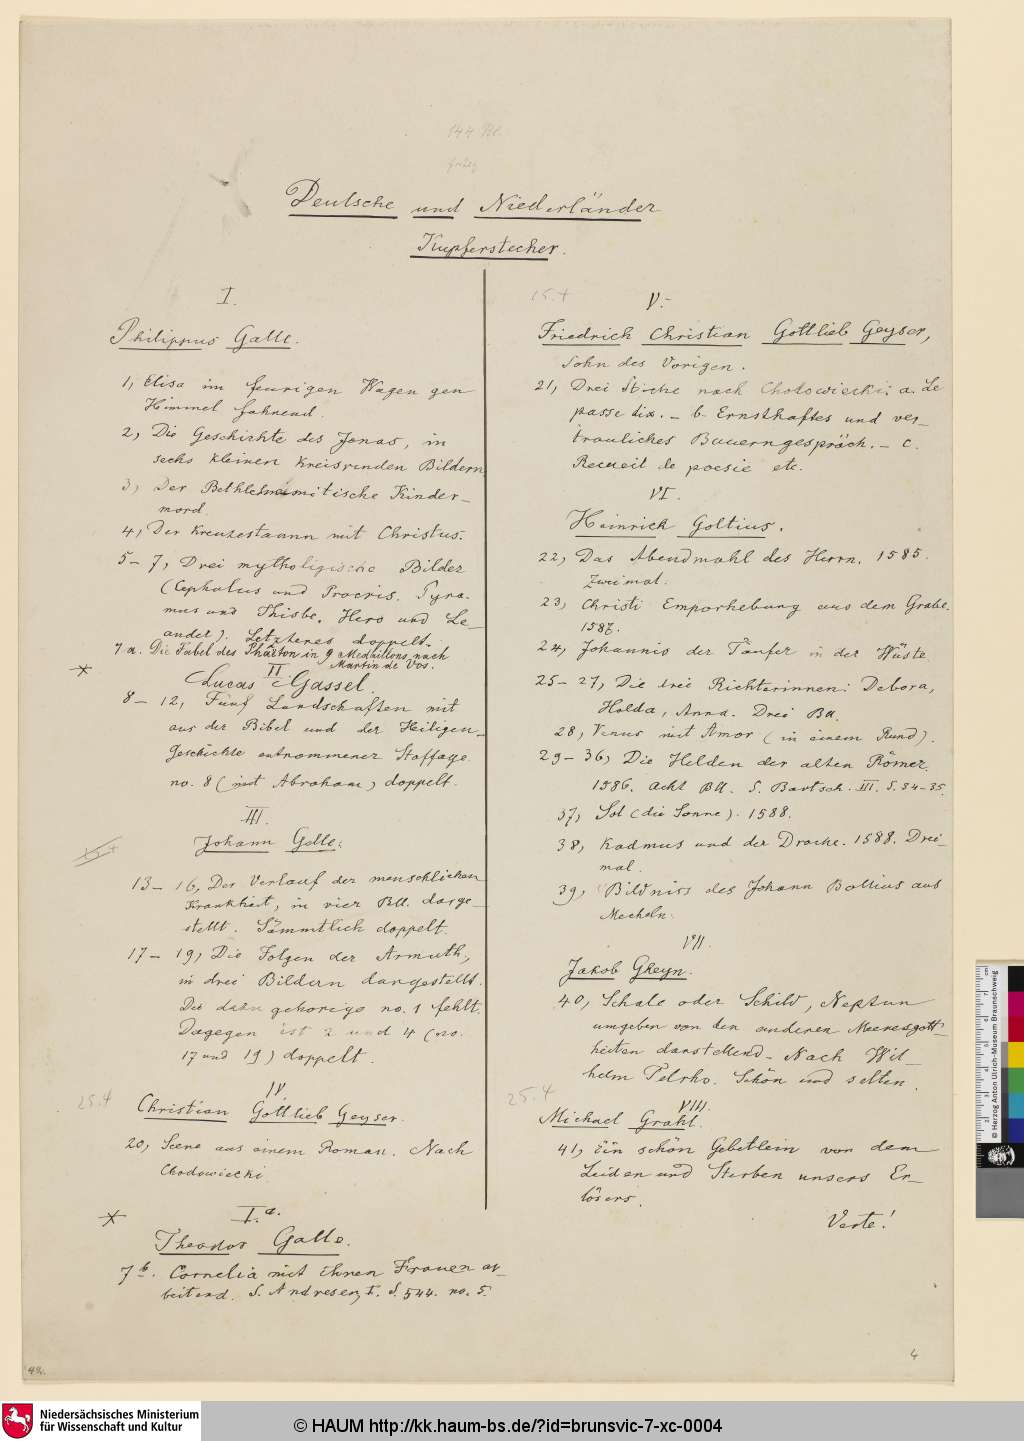 144 Bl.
Deutsche und Niederländer
Kupferstecher.
I.
Philippus Galle.
1, Elisa im feurigen Wagen gen
Himmel fahrend.
2, Die Geschichte des Jonas, in
sechs kleinen kreisrunden Bildern
3, Der Bethlehemitische Kinder-
mord.
4, Der Kreuzestamm mit Christus.
5-7, Drei mythologische Bilder
(Cephalus und Procris. Pyra-
mus und Thisbe. Hero und Le-
ander). Letzteres doppelt.
7.a. Die Fabel des Phaëton in 9 Medaillons nach
Martin de Vos.
II
Lucas Gassel.
8-12, Fünf Landschaften mit
aus der Bibel und der Heiligen-
geschichte entnommener Staffage.
no. 8 (mit Abraham) doppelt.
III.
Johann Galle.
13-16, Der Verlauf der menschlichen
Krankheit, in vier Bll. darge-
stellt. Sämmtlich doppelt.
17-19, Die Folgen der Armuth,
in drei Bildern dargestellt.
Die dazu gehörige no. 1 fehlt.
Dagegen ist 2 und 4 (no.
17 und 19) doppelt.
25.4
IV.
Christian Gottlieb Geyser.
20, Scene aus einem Roman. Nach
Chodowiecki.
I.a.
Theodor Galle.
7b. Cornelia mit ihren Frauen ar-
beitend. S. Andresen, I. S. 544. no. 5.
15.4
V.
Friedrich Christian Gottlieb Geyser,
Sohn des Vorigen.
21, Drei Stiche nach Chodowiecki: a. Le
passe dix. - b. Ernsthaftes und ver-
trauliches Bauerngespräch. - c.
Recueil de poesie etc.
VI.
Heinrich Goltius.
22, Das Abendmahl des Herrn. 1585.
Zweimal.
23, Christi Emporhebung aus dem Grabe.
1587.
24, Johannis der Täufer in der Wüste.
25-27, Die drei Richterinnen: Debora,
Holda, Anna. Drei Bll.
28, Venus mit Amor (in einem Rund).
29-36, Die Helden der alten Römer.
1586. Acht Bll. S. Bartsch. III. S. 34-35.
37, Sol (die Sonne). 1588.
38, Kadmus und der Drache. 1588. Drei-
mal.
39, Bildniss des Johann Bollius aus
Mecheln.
VII.
Jakob Gheyn.
40, Schale oder Schild, Neptun
umgeben von den anderen Meeresgott-
heiten darstellend. Nach Wil-
helm Telrho. Schön und selten.
25.4
VIII.
Michael Grahl.
41, Ein schön Gebetlein von dem
Leiden und Sterben unsers Er-
lösers.
Verte!
4
Niedersächsisches Ministerium
für Wissenschaft und Kultur
© HAUM http://kk.haum-bs.de/?id=brunsvic-7-xc-0004
© Herzog Anton Ulrich-Museum Braunschweig
cm